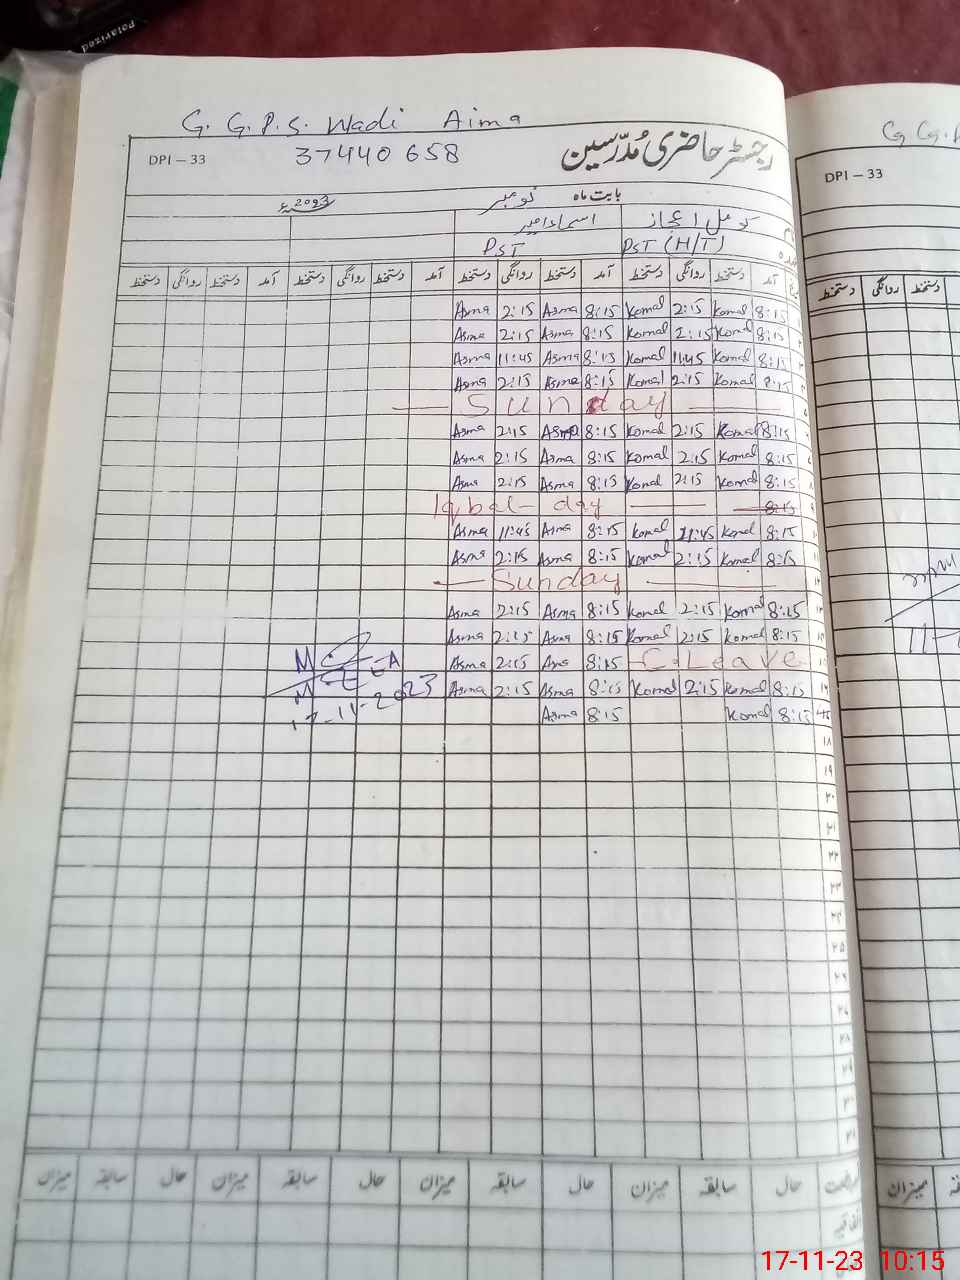 Polarized
G. G.P.S. Wadi Aima
DPI – 33
37440 658
رجسٹر حاضری مُدرّسین
بابت ماہ نومبر 2023ء
کومل اعجاز اسماء امیر
PST (H/T) PST
آمد دستخط روانگی دستخط آمد دستخط روانگی دستخط آمد دستخط روانگی دستخط آمد دستخط روانگی دستخط
8:15 Komal 2:15 Komal 8:15 Asma 2:15 Asma
8:15 Komal 2:15 Komal 8:15 Asma 2:15 Asma
8:15 Komal 11:45 Komal 8:15 Asma 11:45 Asma
8:15 Komal 2:15 Komal 8:15 Asma 2:15 Asma
Sunday
8:15 Komal 2:15 Komal 8:15 Asma 2:15 Asma
8:15 Komal 2:15 Komal 8:15 Asma 2:15 Asma
8:15 Komal 2:15 Komal 8:15 Asma 2:15 Asma
Iqbal day 8:15
8:15 Komal 11:45 Komal 8:15 Asma 11:45 Asma
8:15 Komal 2:15 Komal 8:15 Asma 2:15 Asma
Sunday
8:15 Komal 2:15 Komal 8:15 Asma 2:15 Asma
8:15 Komal 2:15 Komal 8:15 Asma 2:15 Asma
C. Leave 8:15 Asma 2:15 Asma
8:15 Komal 2:15 Komal 8:15 Asma 2:15 Asma
8:15 Komal 8:15 Asma
MEA
17-11-2023
۱۸
۱۹
۲۰
۲۱
۲۲
۲۳
۲۴
۲۵
۲۶
۲۷
۲۸
۲۹
۳۰
۳۱
حال سابقہ میزان حال سابقہ میزان حال سابقہ میزان حال سابقہ میزان
اتفاقیہ
DPI – 33
دستخط روانگی دستخط
میزان
17-11-23 10:15